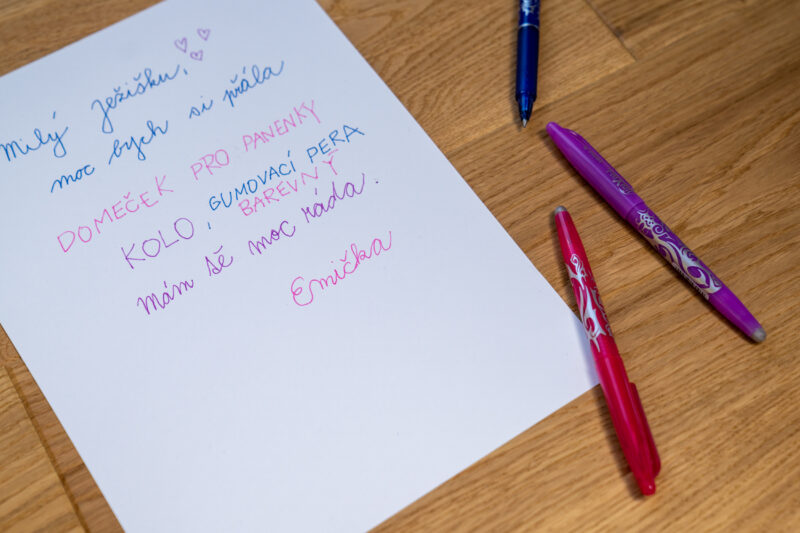 Milý Ježišku,
moc bych si přála
DOMEČEK PRO PANENKY
KOLO, GUMOVACÍ PERA
BAREVNÝ
Mám tě moc ráda.
Emička